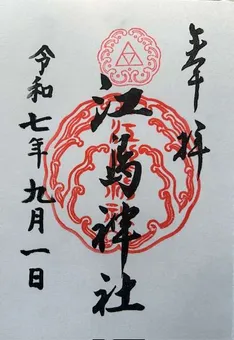 奉拝
江島神社
令和七年九月一日